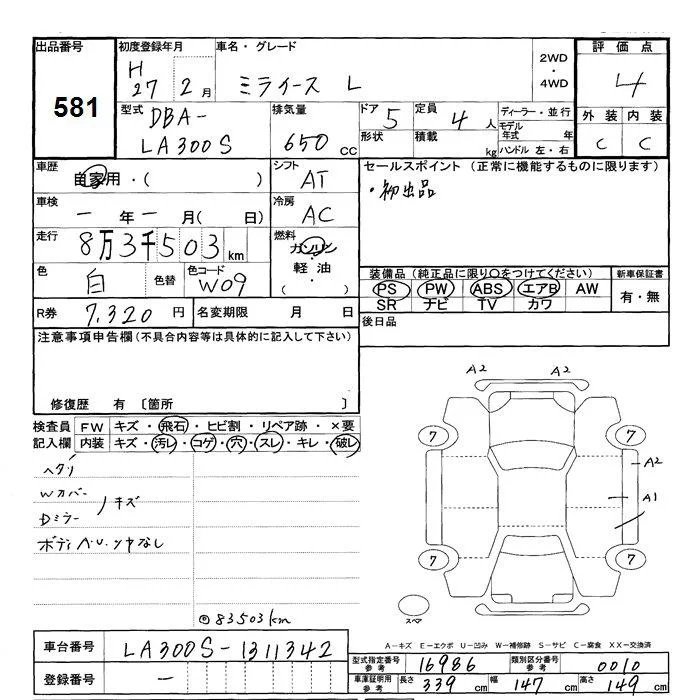 出品番号 初度登録年月 車名・グレード 評価点
581
H 27 2月 ミライース L 2WD・4WD 4
型式 DBA-LA300S 排気量 650 CC ドア 5 定員 4人 ディーラー・並行 外装 内装
形状 積載 kg モデル年式 年 ハンドル 左・右 C C
車歴 自家用・( ) シフト AT セールスポイント (正常に機能するものに限ります)
・初出品
車検 一年一月( 日) 冷房 AC
走行 8万3千503km 燃料 ガソリン・軽油 ( )
色 白 色替 色コード W09 装備品 (純正品に限り○をつけてください) 新車保証書
PS PW ABS エアB AW 有・無
SR ナビ TV カワ
R券 7,320円 名変期限 月 日 後日品
注意事項申告欄 (不具合内容等は具体的に記入して下さい)
修復歴 有 〔箇所 〕
検査員 FW キズ・飛石・ヒビ割・リペア跡・×要
記入欄 内装 キズ・汚レ・コゲ・穴・スレ・キレ・破レ
ヘタリ
Wカバー
Dミラー キズ
ボディ A.U.ツヤなし
A2 A2
7 7
A2
A1
7 7
スペア
83503km
A-キズ E-エクボ U-凹み W-補修跡 S-サビ C-腐食 XX-交換済
車台番号 LA300S-1311342
型式指定番号 参考 16986 類別区分番号 参考 0010
登録番号 -
車庫証明用 参考 長さ 339cm 幅 147cm 高さ 149cm